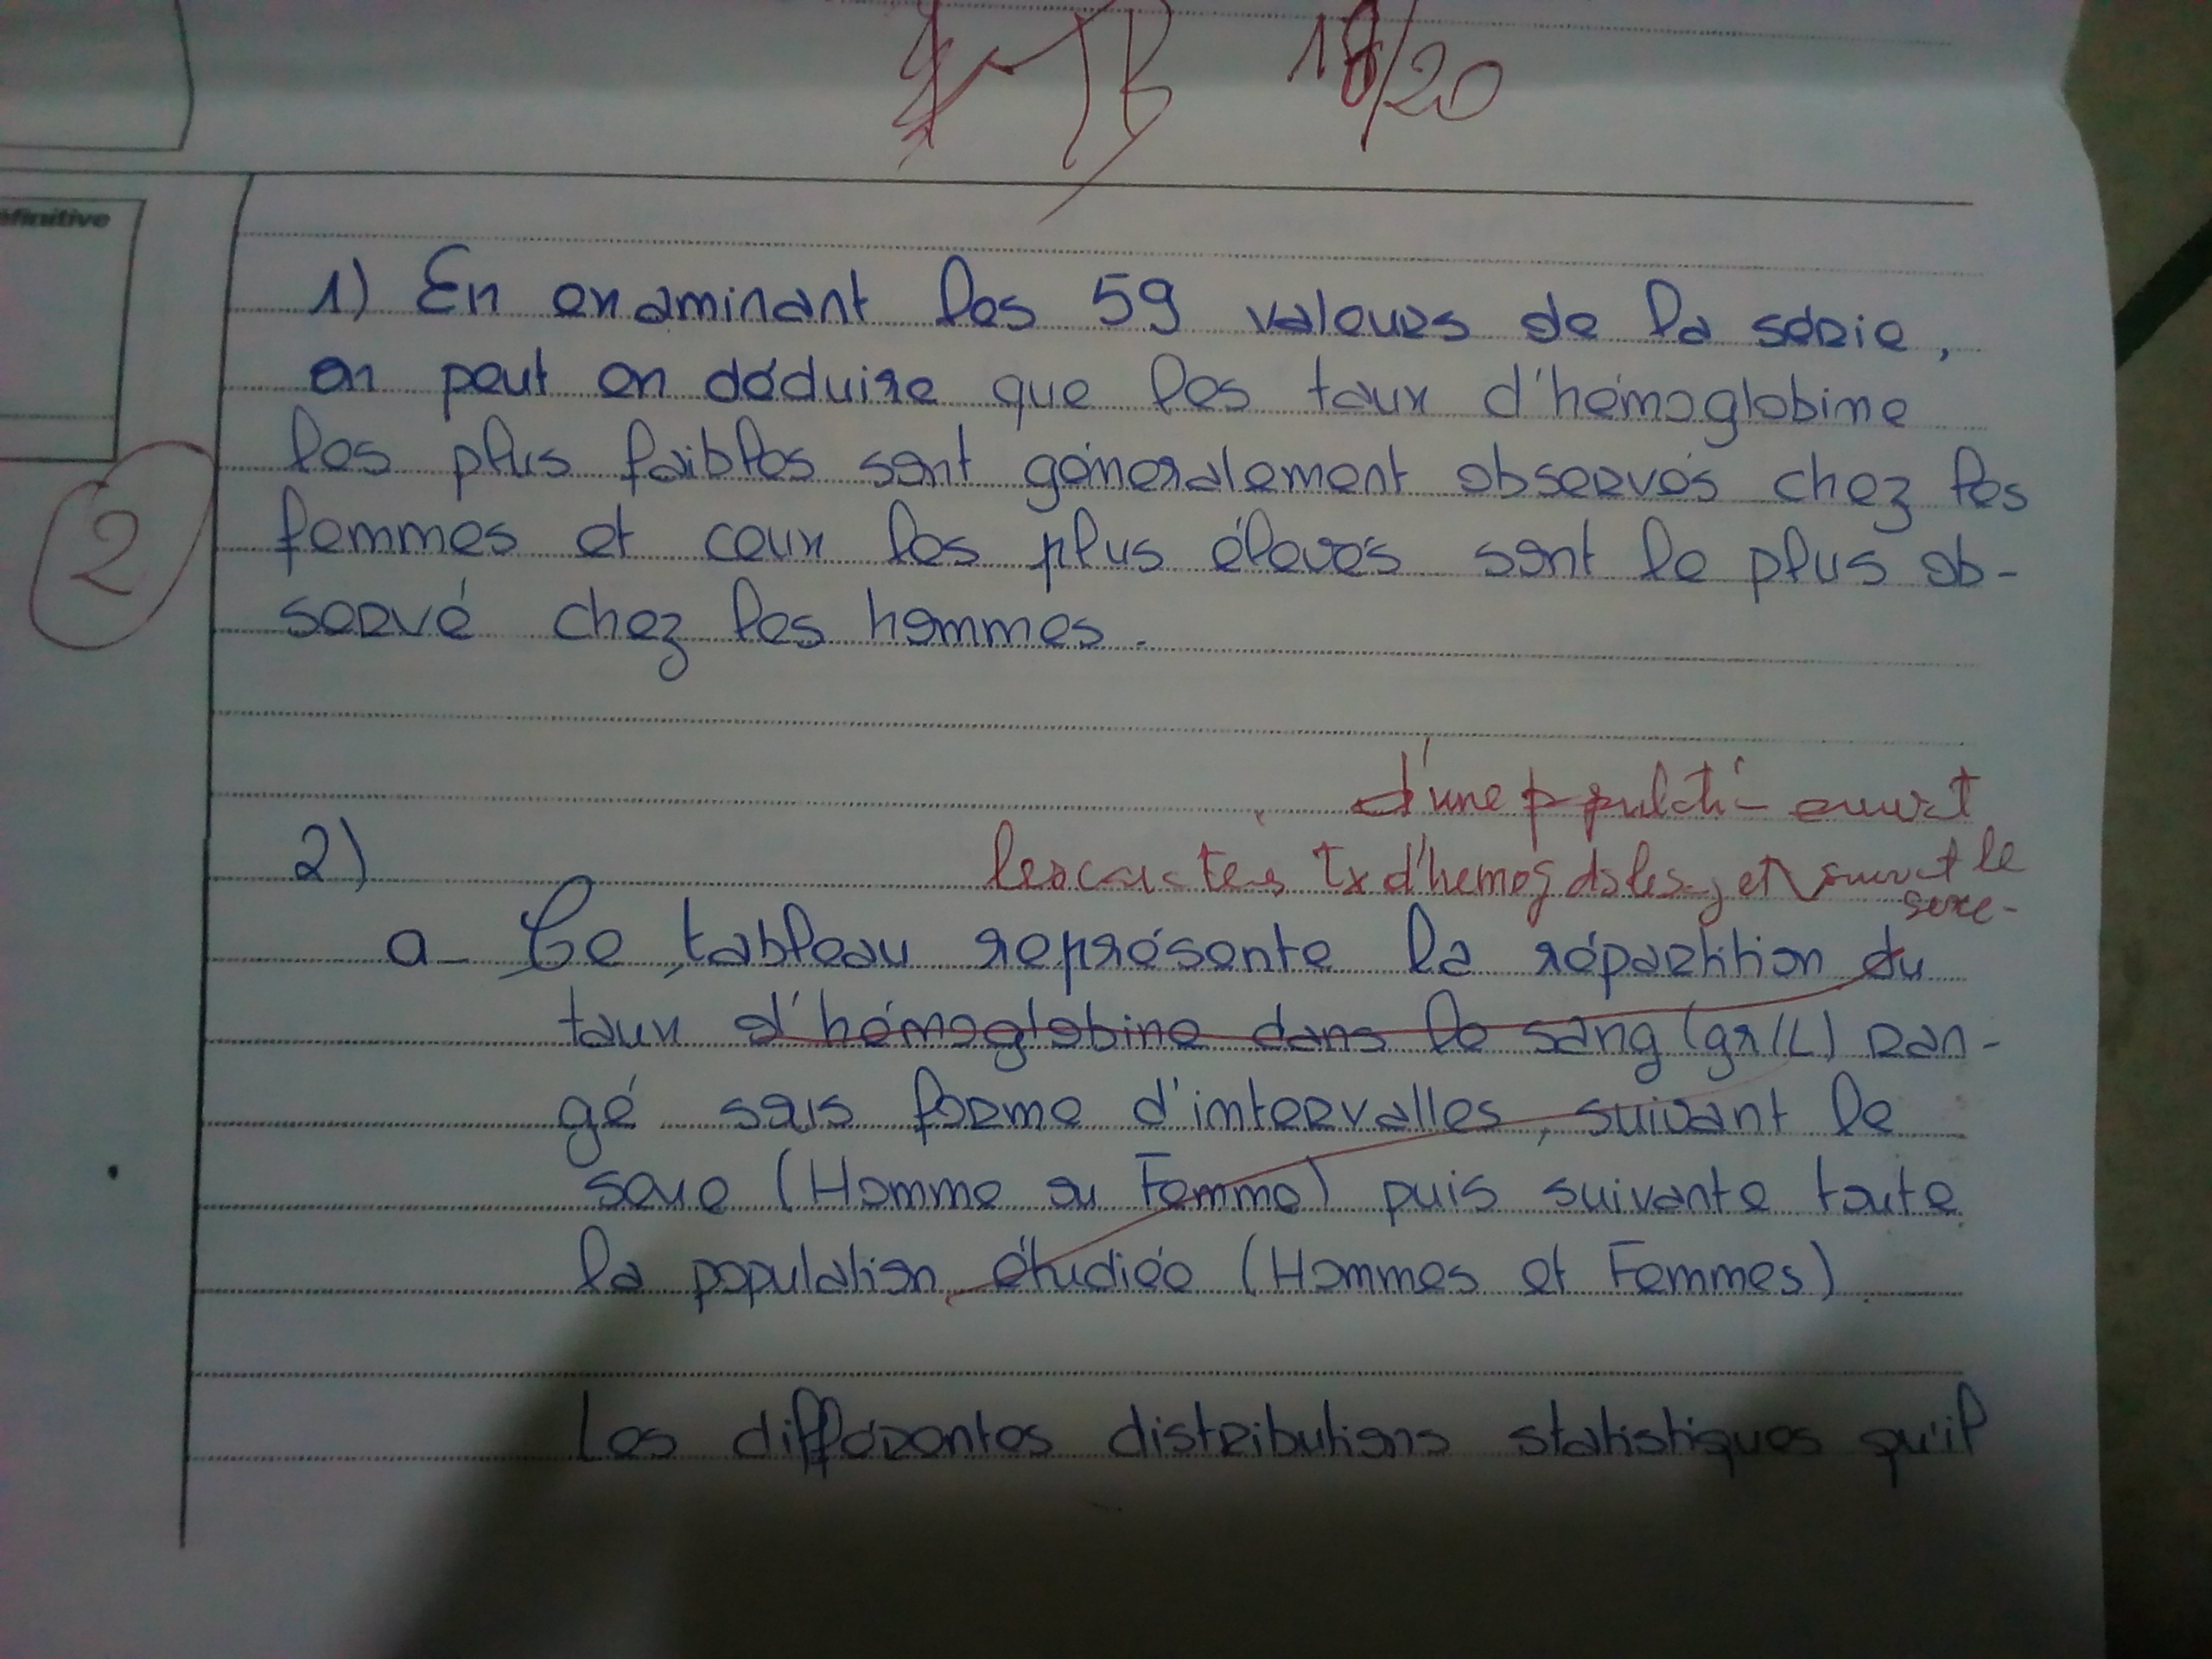 TB 18/20
éfinitive
1) En examinant les 59 valeurs de la série,
on peut en déduire que les taux d'hémoglobine
les plus faibles sont généralement observés chez les
2
femmes et ceux les plus élevés sont le plus ob-
servé chez les hommes.
d'une populati-
2)
les Tx d'hemog ds le et suivt le
sexe-
a- Ce tableau représente la répartition du
taux d'hémoglobine dans le sang (gr/L) ran-
gé sous forme d'intervalles, suivant le
sexe (Homme ou Femme) puis suivante toute
la population étudiée (Hommes et Femmes)
Les différentes distributions statistiques qu'il